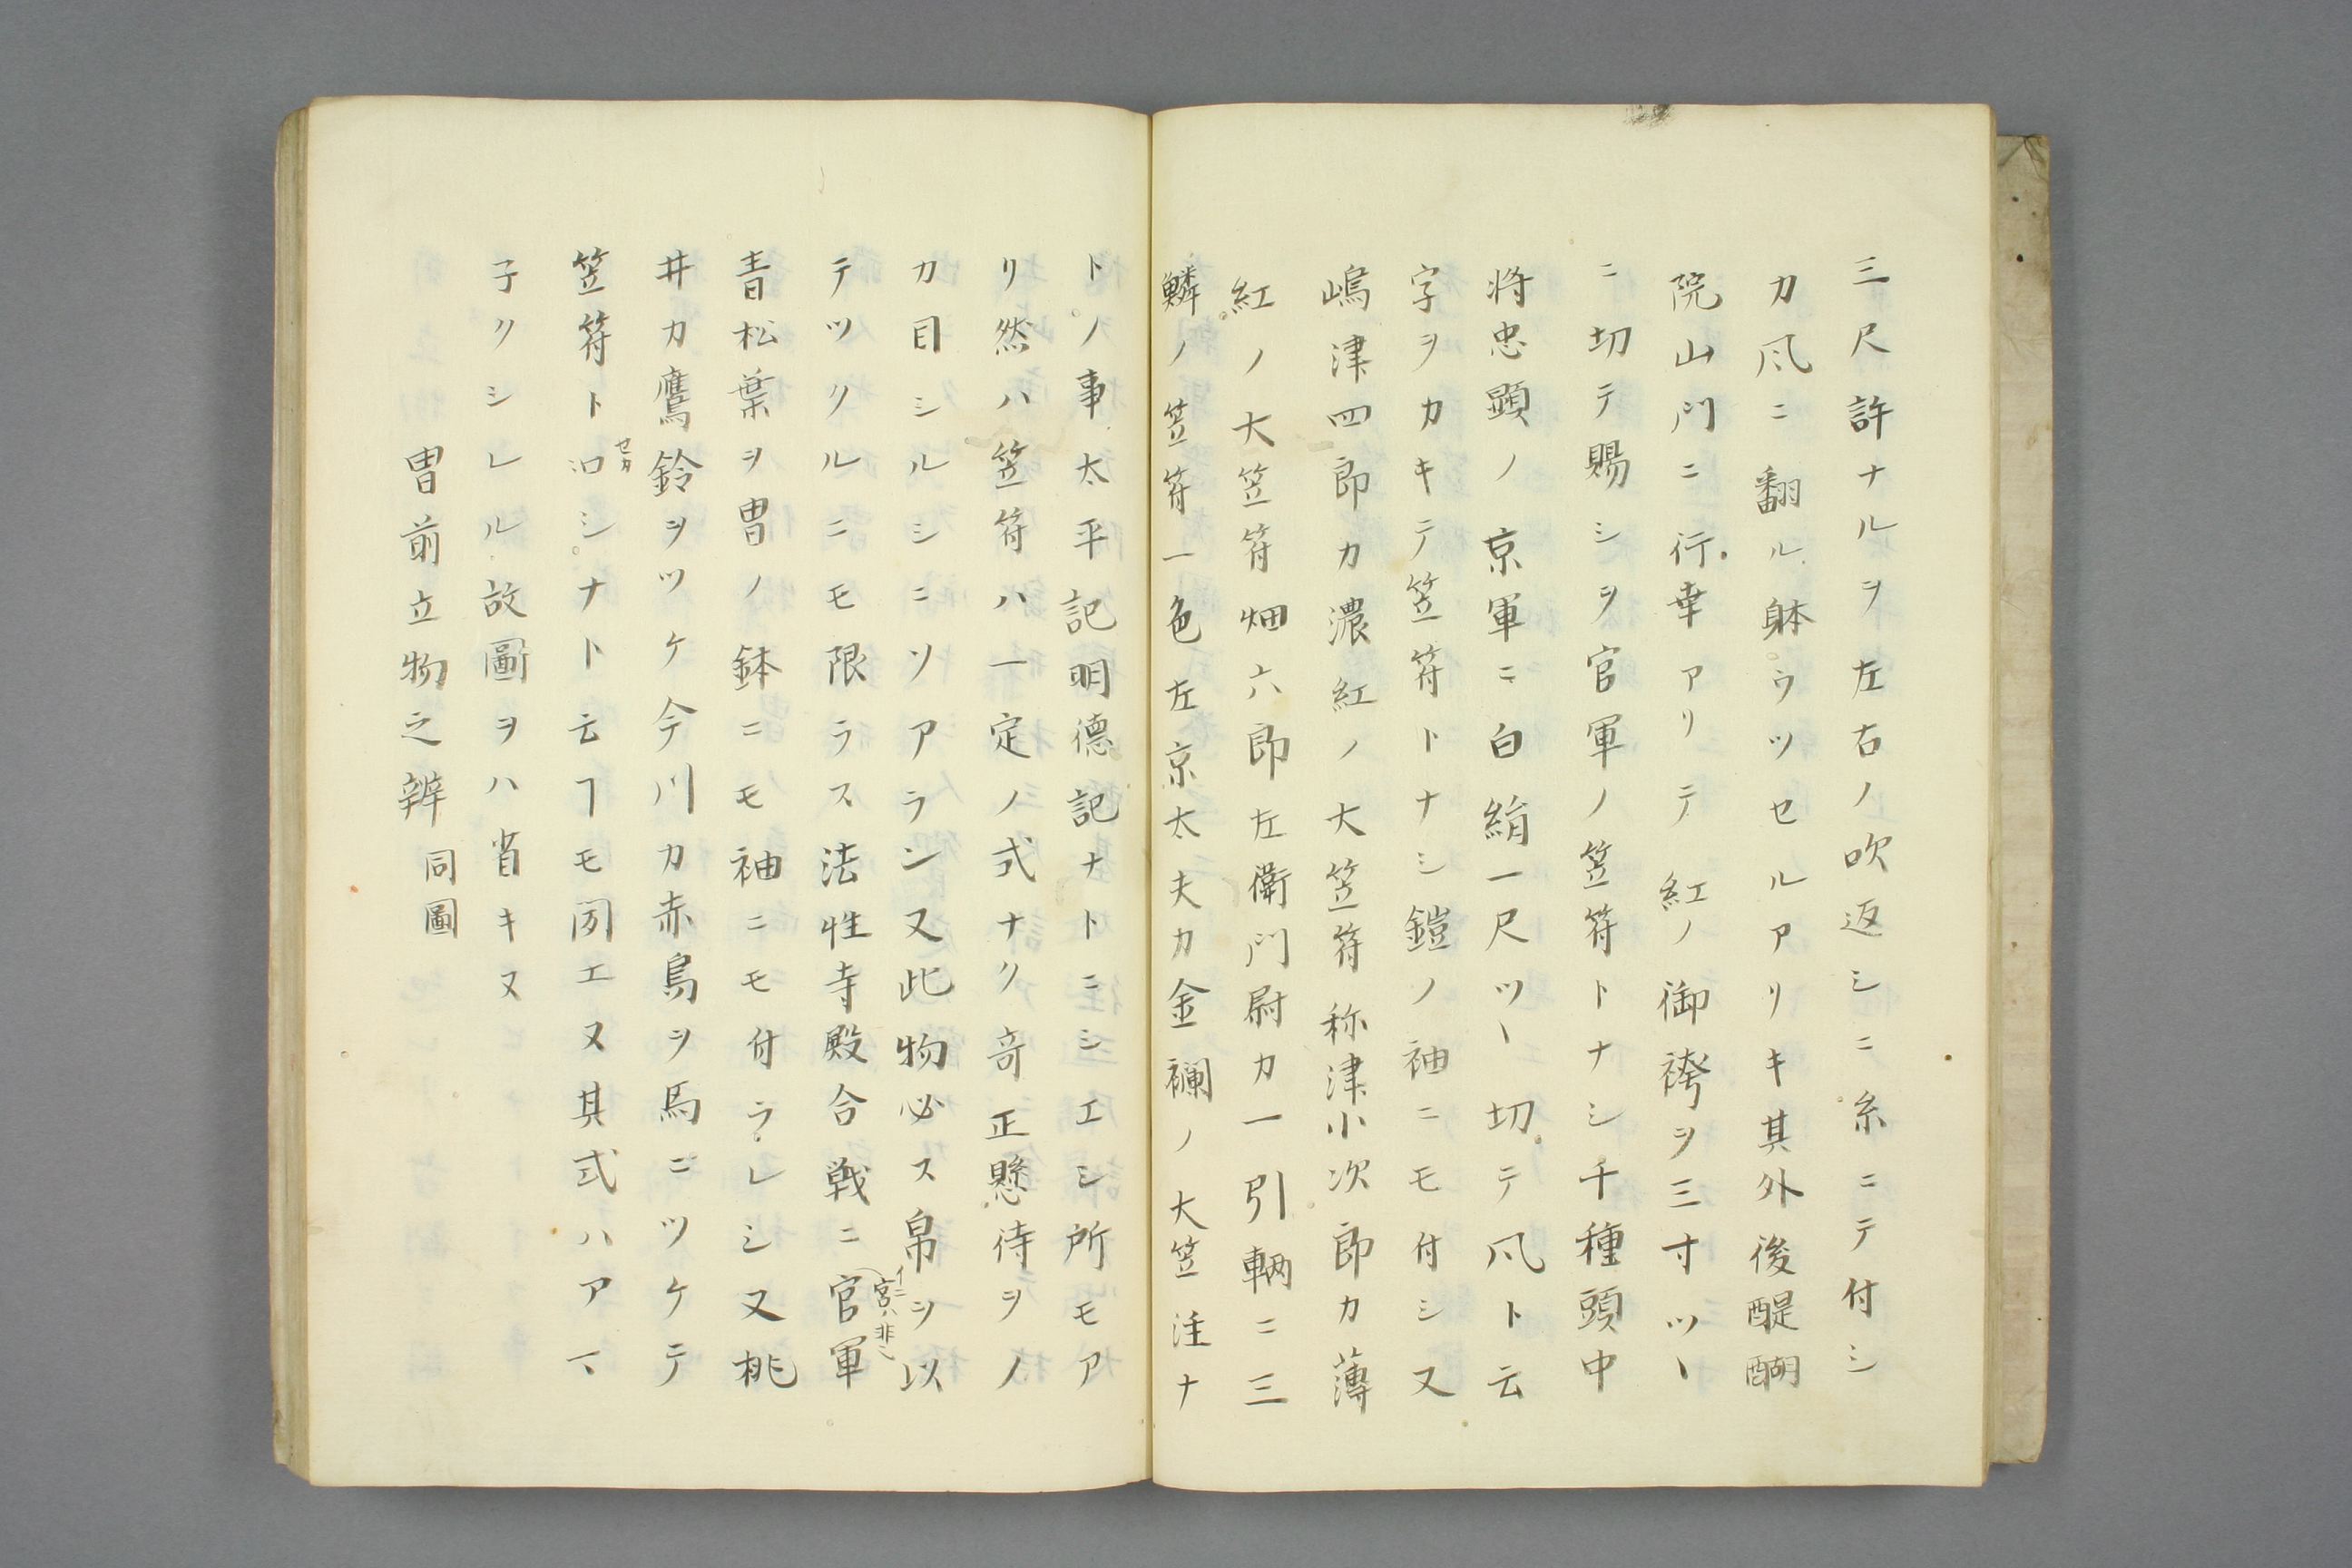 三尺許ナルヲ左右ノ吹返シニ糸ニテ付シ
カ風ニ翻ル躰ウツセルアリキ其外後醍醐
院山門ニ行幸アリテ紅ノ御袴ヲ三寸ツヽ
ニ切テ賜シヲ官軍ノ笠符トナシ千種頭中
将忠顕ノ京軍ニ白絹一尺ツヽ切テ风ト云
字ヲカキテ笠符トナシ鎧ノ袖ニモ付シ又
嶋津四郎カ濃紅ノ大笠符称津小次郎カ薄
紅ノ大笠符畑六郎左衛門尉カ一引輌ニ三
鱗ノ笠符一色左京太夫カ金襴ノ大笠注ナ
トノ事太平記明徳記ナトニシエシ所モア
リ然ハ笠符ハ一定ノ式ナク奇正懸待ヲノ
カ目シルシニソアラン又此物必ス帛ヲ以
テツクルニモ限ラス法性寺殿合戦ニ官軍
イニ宮ハ非
青松葉ヲ冑ノ鉢ニモ袖ニモ付ラレシ又桃
井カ鷹鈴ヲツケ今川カ赤鳥ヲ馬ニツケテ
笠符トロシナト云ヿモ聞エヌ其式ハアマ
セカ
子クシレルル故圖ヲハ省キヌ
冑前立物之辨 同圖